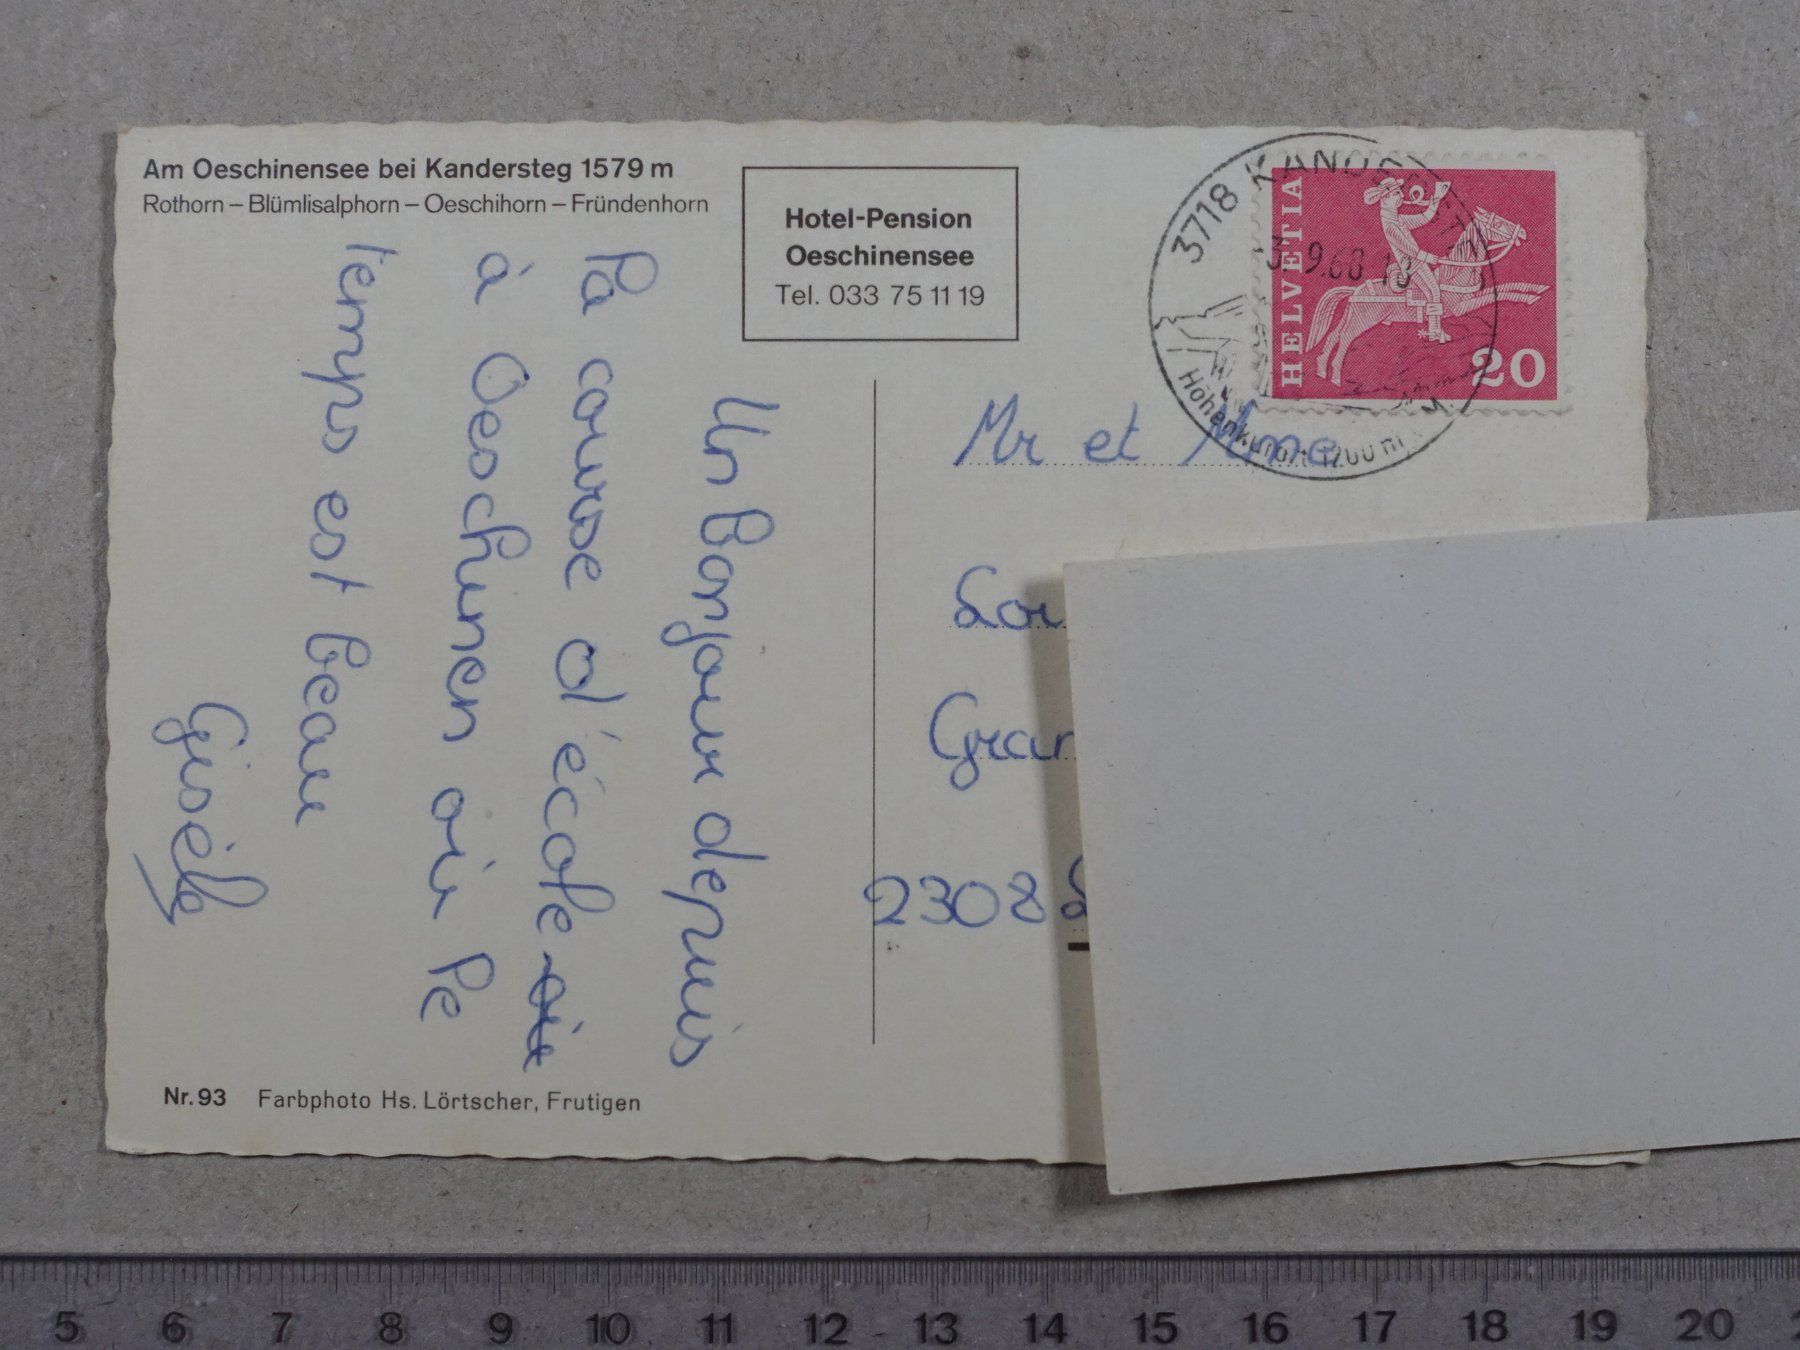 Am Oeschinensee bei Kandersteg 1579 m
Rothorn – Blümlisalphorn – Oeschihorn – Fründenhorn
Hotel-Pension
Oeschinensee
Tel. 033 75 11 19
3718 KANDERSTEG
3. 9.68 18
Höhenkurort 1200 m
HELVETIA
20
Un bonjour depuis
la course d'école où
à Oeschinen où le
temps est beau
Gisèle
Mr et Mme
2308
Nr. 93 Farbphoto Hs. Lörtscher, Frutigen
5 6 7 8 9 10 11 12 13 14 15 16 17 18 19 20